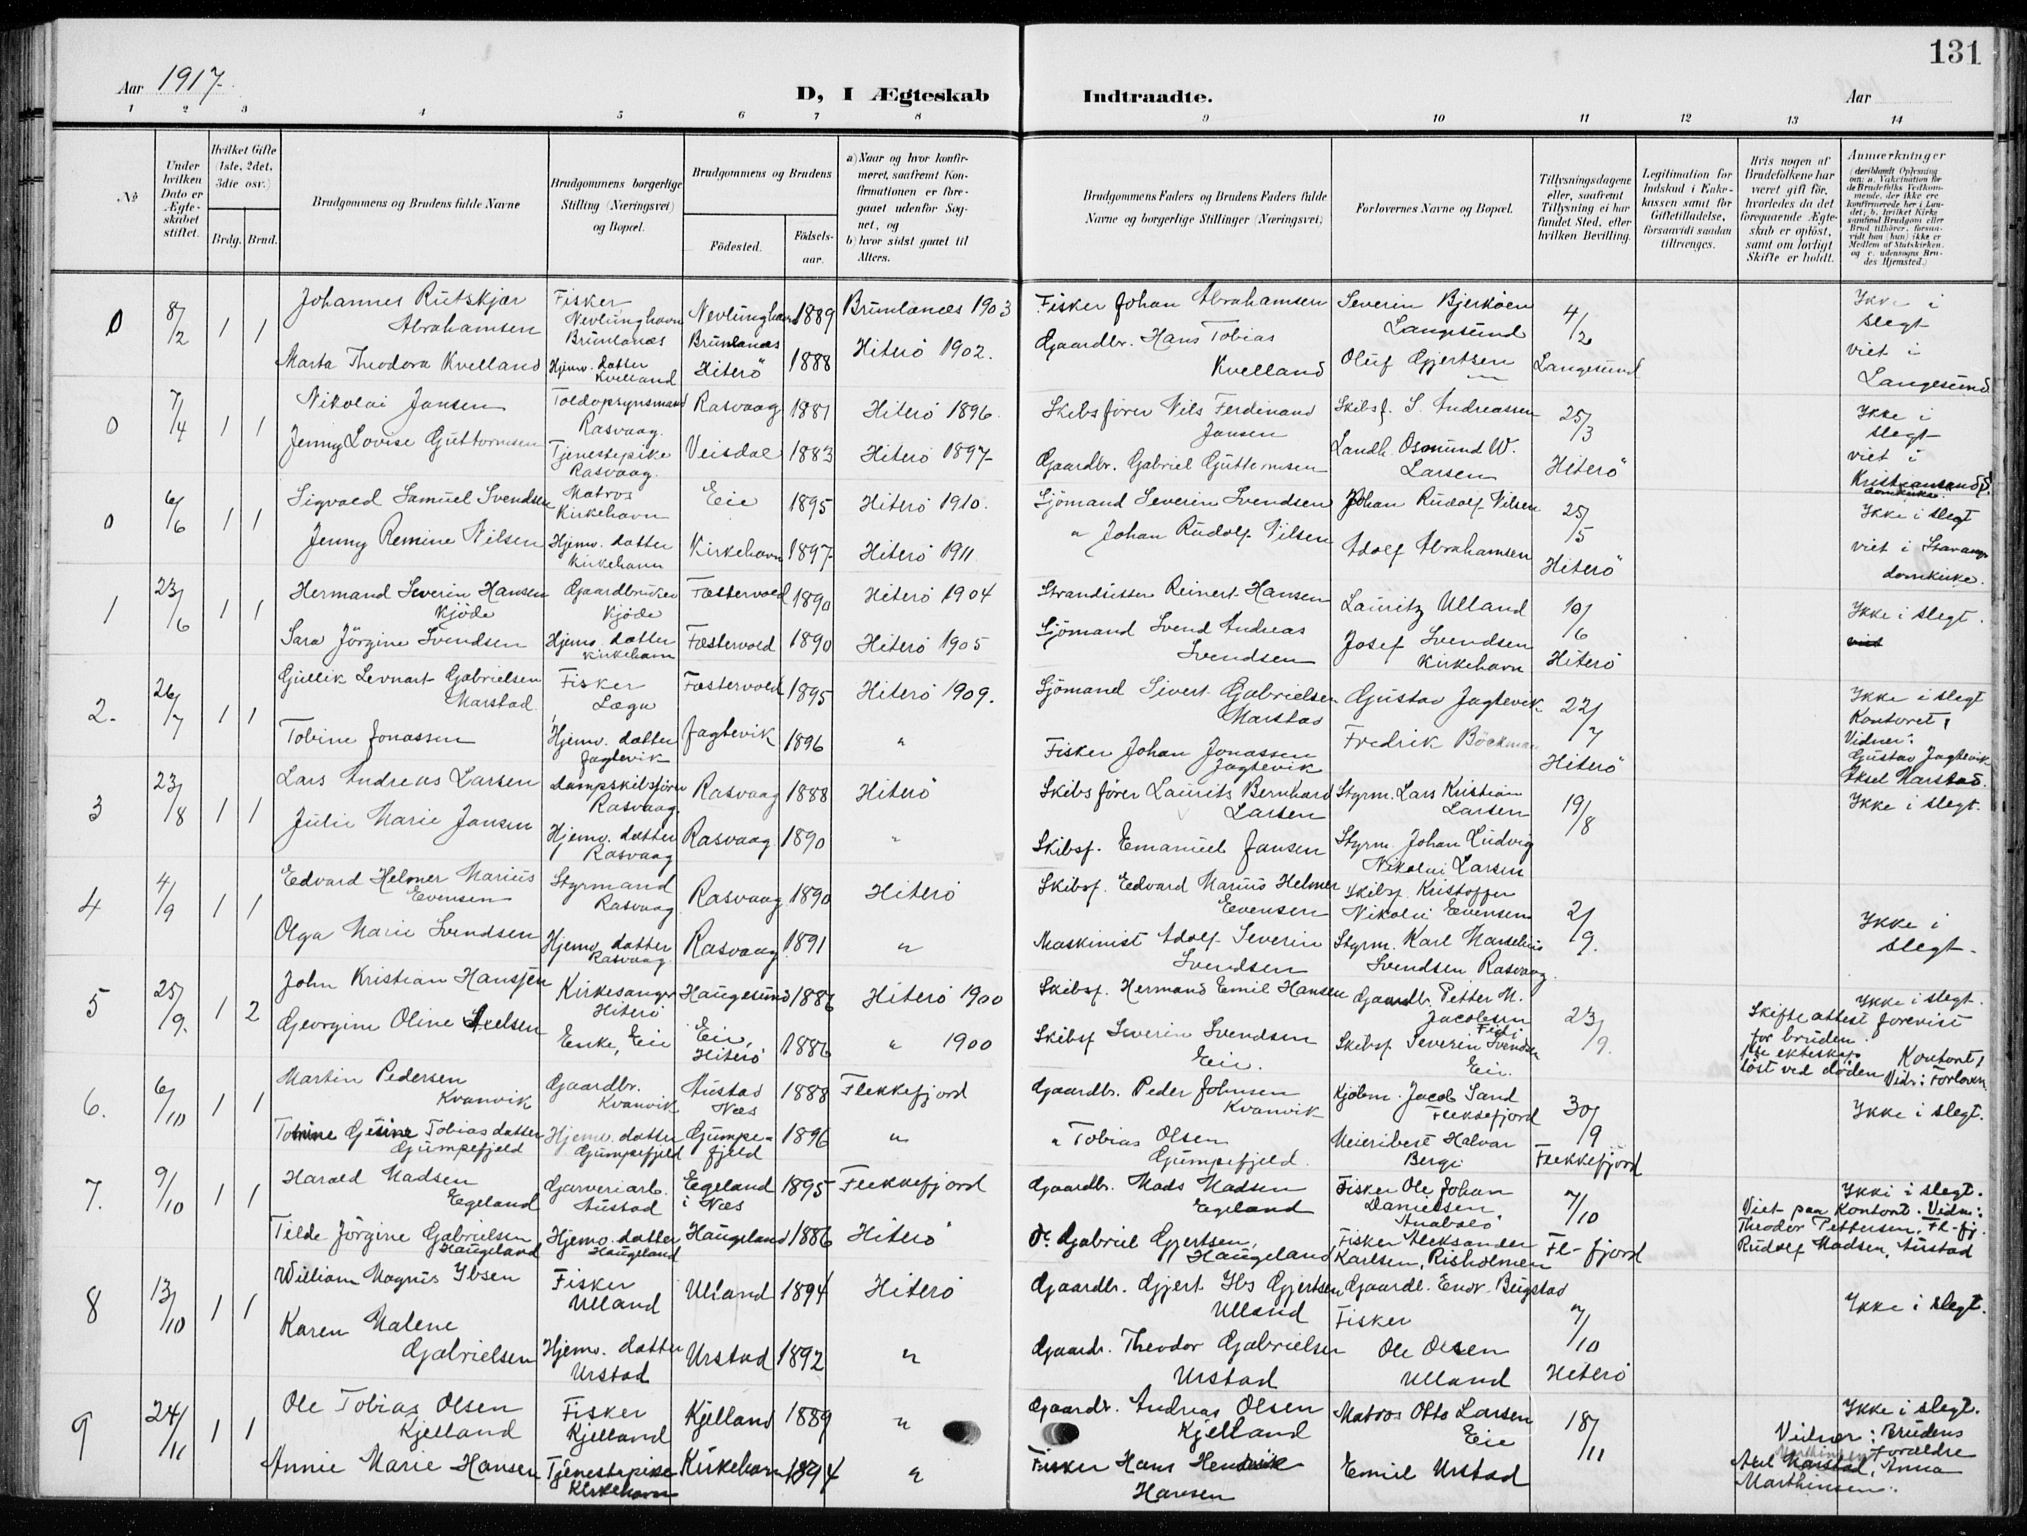 131
Aar 1917.
D, I Ægteskab Indtraadte.
Aar
1 2 3 4 5 6 7 8 9 10 11 12 13 14
No
Under hvilken Dato er Ægteskabet stiftet.
Hvilket Gifte (1ste, 2det, 3die osv.)
Brdg. Brud.
Brudgommens og Brudens fulde Navne
Brudgommens borgerlige Stilling (Næringsvei) og Bopæl.
Brudgommens og Brudens
Födested.
Födselsaar.
a) Naar og hvor konfirmeret, saafremt Konfirmationen er foregaaet udenfor Sognet, og
b) hvor sidst gaaet til Alters.
Brudgommens Faders og Brudens Faders fulde Navne og borgerlige Stillinger (Næringsvei)
Forlovernes Navne og Bopæl.
Tillysningsdagene eller, saafremt Tillysning ei har fundet Sted, efter hvilken Bevilling.
Legitimation for Indskud i Enkekassen samt for Giftetilladelse, forsaavidt saadan tiltrænges.
Hvis nogen af Brudefolkene har været gift för, hvorledes da det foregaaende Ægteskab er oplöst, samt om lovligt Skifte er holdt.
Anmærkninger
0 8/2 1 1 Johannes Rutskjær Abrahamsen Fisker Nevlunghavn Brunlanæs Nevlunghavn Brunlanæs 1889 Brunlanæs 1903 Fisker Johan Abrahamsen Severin Bjerkøen Langesund 4/2 Ikke i slegt
Marta Theodora Kvelland Hjemv. datter Kvelland Hiterö 1888 Hiterö 1902. Gaardbr. Hans Tobias Kvelland Oluf Gjertsen Langesund viet i Langesund
0 7/4 1 1 Nikolai Jansen Toldopsynsmand Rasvaag. Rasvaag 1881 Hiterö 1896. Skibsfører Nils Ferdinand Jansen Skibsf. S. Andreassen 25/3 Ikke i slegt
Jenny Lovise Guttormsen Tjenestepike Rasvaag. Veisdal 1883 Hiterö 1897 Gaardbr. Gabriel Guttormsen Landh. Osmund W. Larsen Hiterö viet i Kristiansands domkirke.
0 6/6 1 1 Sigvald Samuel Svendsen Matros Kirkehavn Eie 1895 Hiterö 1910. Sjömand Severin Svendsen Johan Rudolf Nilsen 25/5 Ikke i slegt
Jenny Remine Nilsen Hjemv. datter Kirkehavn Kirkehavn 1897 Hiterö 1911 " Johan Rudolf Nilsen Adolf Abrahamsen Hiterö viet i Stavanger domkirke.
1 23/6 1 1 Hermand Severin Hansen Kjöde Gaardbruker Kjöde Fæstervold 1890 Hiterö 1904 Strandsitter Reinert Hansen Lauritz Ulland 10/6 Ikke i slegt.
Sara Jörgine Svendsen Hjemv. datter Kirkehavn Fæstervold 1890 Hiterö 1905 Sjömand Svend Andreas Svendsen Josef Svendsen Kirkehavn Hiterö
2. 26/7 1 1 Gullik Levnart Gabrielsen Marstad Fisker Læga Fæstervold 1895 Hiterö 1909. Sjömand Sivert Gabrielsen Marstad Gustav Jagtevik 22/7 Ikke i slegt
Tobine Jonassen Hjemv. datter Jagtevik Jagtevik 1896 " Fisker Johan Jonassen Jagtevik Fredrik Böckman Hiterö Kontoret, Vidner: Gustav Jagtevik Aksel Marstad.
3 23/8 1 1 Lars Andreas Larsen dampskibsfører Rasvaag. Rasvaag 1888 Hiterö Skibsfører Laurits Bernhard Larsen Styrm. Lars Kristian Larsen 19/8 Ikke i slegt.
Julie Marie Jansen Hjemv. datter Rasvaag Rasvaag 1890 " Skibsf. Emanuel Jansen Styrm. Johan Ludvig Nikolai Larsen
4 4/9 1 1 Edvard Helmer Marius Evensen Styrmand Rasvaag Rasvaag 1890 Hiterö Skibsf. Edvard Marius Helmer Evensen Skibsf. Kristoffer Nikolai Evensen 2/9. Ikke i slegt.
Olga Marie Svendsen Hjemv. datter Rasvaag Rasvaag 1891 " Maskinist Adolf Severin Svendsen Styrm. Karl Marselius Svendsen Rasvaag.
5 25/9. 1 2 John Kristian Hansen Kirkesanger Hiterö Haugesund 1886 Hiterö 1900 Skibsf. Hermand Emil Hansen Gaardbr. Petter M. Jacobsen Fidi 23/9. Ikke i slegt.
Georgine Oline Axelsen Enke, Eie Eie, Hiterö 1886 " 1900 Skibsf Severin Svendsen Eie. Skibsf Severin Svendsen Eie. Skifteattest forevist for bruden. 1ste ekteskap löst ved döden Kontoret, Vidn: Forlovern
6. 6/10 1 1 Martin Pedersen Kvanvik Gaardbr. Kvanvik Austad Næs 1888 Flekkefjord Gaardbr. Peder Johnsen Kvanvik Kjöbm. Jacob Sand Flekkefjord 30/9 Ikke i slegt.
Tomine Gesine Tobiasdatter Gumpefjeld Hjemv. datter Gumpefjeld Gumpefjeld 1896 " " Tobias Olsen Gumpefjeld. Meieribest Halvar Berge Flekkefjord
7. 9/10 1 1 Harald Madsen Egeland Garveriarb. Austad Egeland i Næs 1895 Flekkefjord Gaardbr. Mads Madsen Egeland Fisker Ole Johan Danielsen Anabalö 7/10 Ikke i slegt.
Tilde Jörgine Gabrielsen Haugeland Hjemv. datter Haugeland Haugeland 1886 Hiterö Do. Gabriel Gjertsen, Haugeland Fisker Aleksander Karlsen, Risholmen Fl-fjord Viet paa Kontoret. Vidn: Theodor Pettersen, Fl-fj. Rudolf Madsen, Austad
8 13/10 1 1 William Magnus Ibsen Fisker Ulland Ulland 1894 Hiterö Gaardbr. Gjert Ibs Gjertsen Ulland Gaardb. Endr. Bugstad 7/10 Ikke i slegt.
Karen Malene Gabrielsen Hjemv. datter Urstad Urstad 1892 " Gaardb. Theodor Gabrielsen Urstad Fisker Ole Olsen Ulland Hiterö
9 24/11 1 1 Ole Tobias Olsen Kjelland Fisker Kjelland Kjelland 1889 " Gaardbr. Andreas Olsen Kjelland Matros Otto Larsen Eie 18/11 Ikke i slegt.
Annie Marie Hansen Tjenestepike Kirkehavn Kirkehavn 1894 " Fisker Hans Hendrik Hansen Emil Urstad Vidner: Brudens Forældre Axel Marstad, Anna Marthinsen.